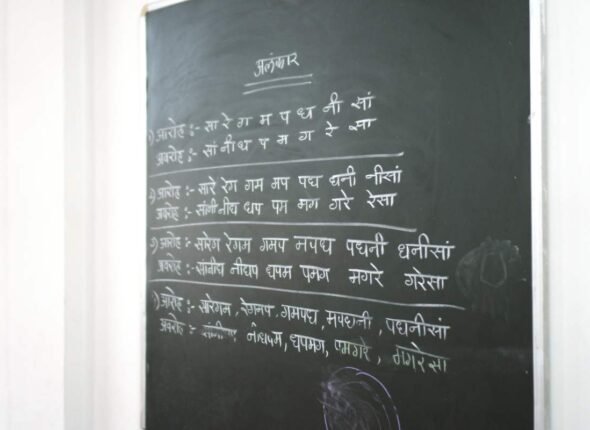 अलंकार
१) आरोह :- सा रे ग म प ध नी सां
अवरोह :- सां नी ध प म ग रे सा
२) आरोह :- सारे रेग गम मप पध धनी नीसां
अवरोह :- सांनी नीध धप पम मग गरे रेसा
३) आरोह :- सारेग रेगम गमप मपध पधनी धनीसां
अवरोह :- सांनीध नीधप धपम पमग मगरे गरेसा
आरोह :- सारेगम, रेगमप, गमपध, मपधनी, पधनीसां
अवरोह :- नीधपम, धपमग, पमगरे, मगरेसा